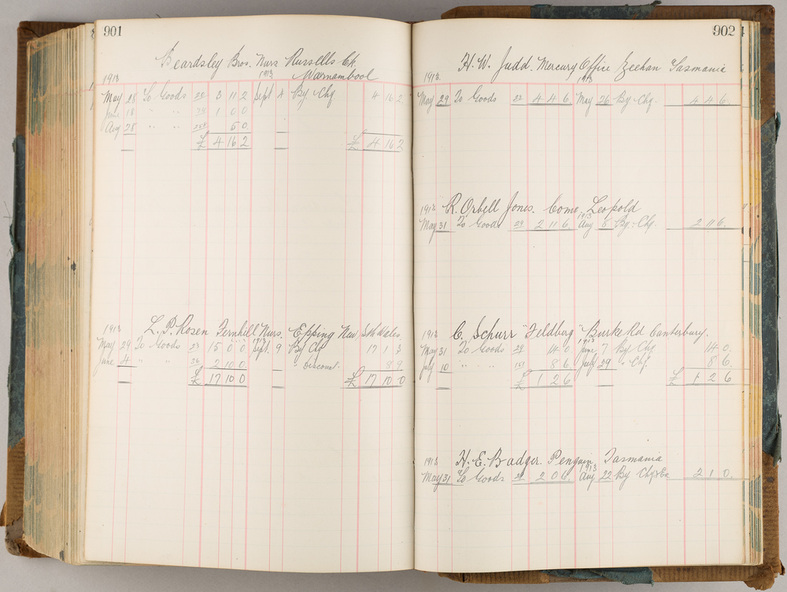 901
Beardsley Bros. Nurs Russells Ck
1913 1913 Warnambool
May 28 To Goods 3 11 2 Sept 4 By Chq 4 16 2
June 18 " " 1 0 0
Aug 28 " " 5 0
£ 4 16 2 £ 4 16 2
1913 L. P. Rosen Fernhill Nurs. Epping New Sth Wales
May 29 To Goods 15 0 0 Sept. 9 By Chq 17 1 3
June 4 " " 2 10 0 " Discount 8 9
£ 17 10 0 £ 17 10 0
902
H. W. Judd Mercury Office Zeehan Tasmania
1913 1913
May 29 To Goods 4 4 6 May 26 By Chq 4 4 6
1913 R. Orbell Jones. Leopold
May 31 To Goods 2 11 6 Aug 8 By Chq 2 11 6
1913 C. Schurr "Feldberg" Burke Rd Canterbury.
1913
May 31 To Goods 14 0 June 7 By Chq 14 0
July 10 " " 8 6 July 29 " Chq 8 6
£ 1 2 6 £ 1 2 6
1913 H. E. Badger Penguin Tasmania
1913
May 31 To Goods Aug 22 By 2 1 0